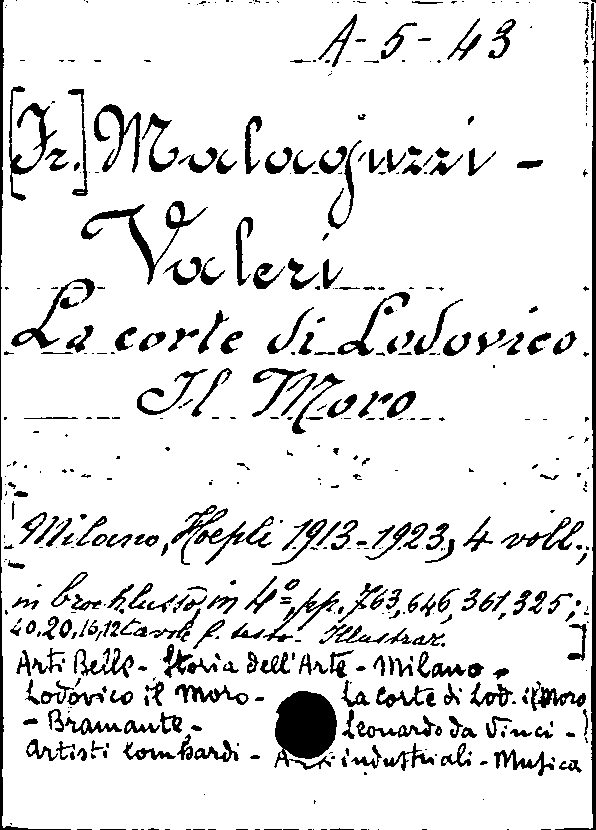 A-5-43
[Fr.] Malaguzzi-
Valeri
La corte di Lodovico
Il Moro
Milano, Hoepli 1913-1923, 4 voll.,
in broch. lusso, in 4º, pp. 763, 646, 361, 325;
40, 20, 16, 12 tavole f. testo. Illustraz.
Arti Belle - Storia dell'Arte - Milano -
Lodovico il Moro - La corte di Lod. il Moro
- Bramante - Leonardo da Vinci -
Artisti lombardi - Arti industriali - Musica